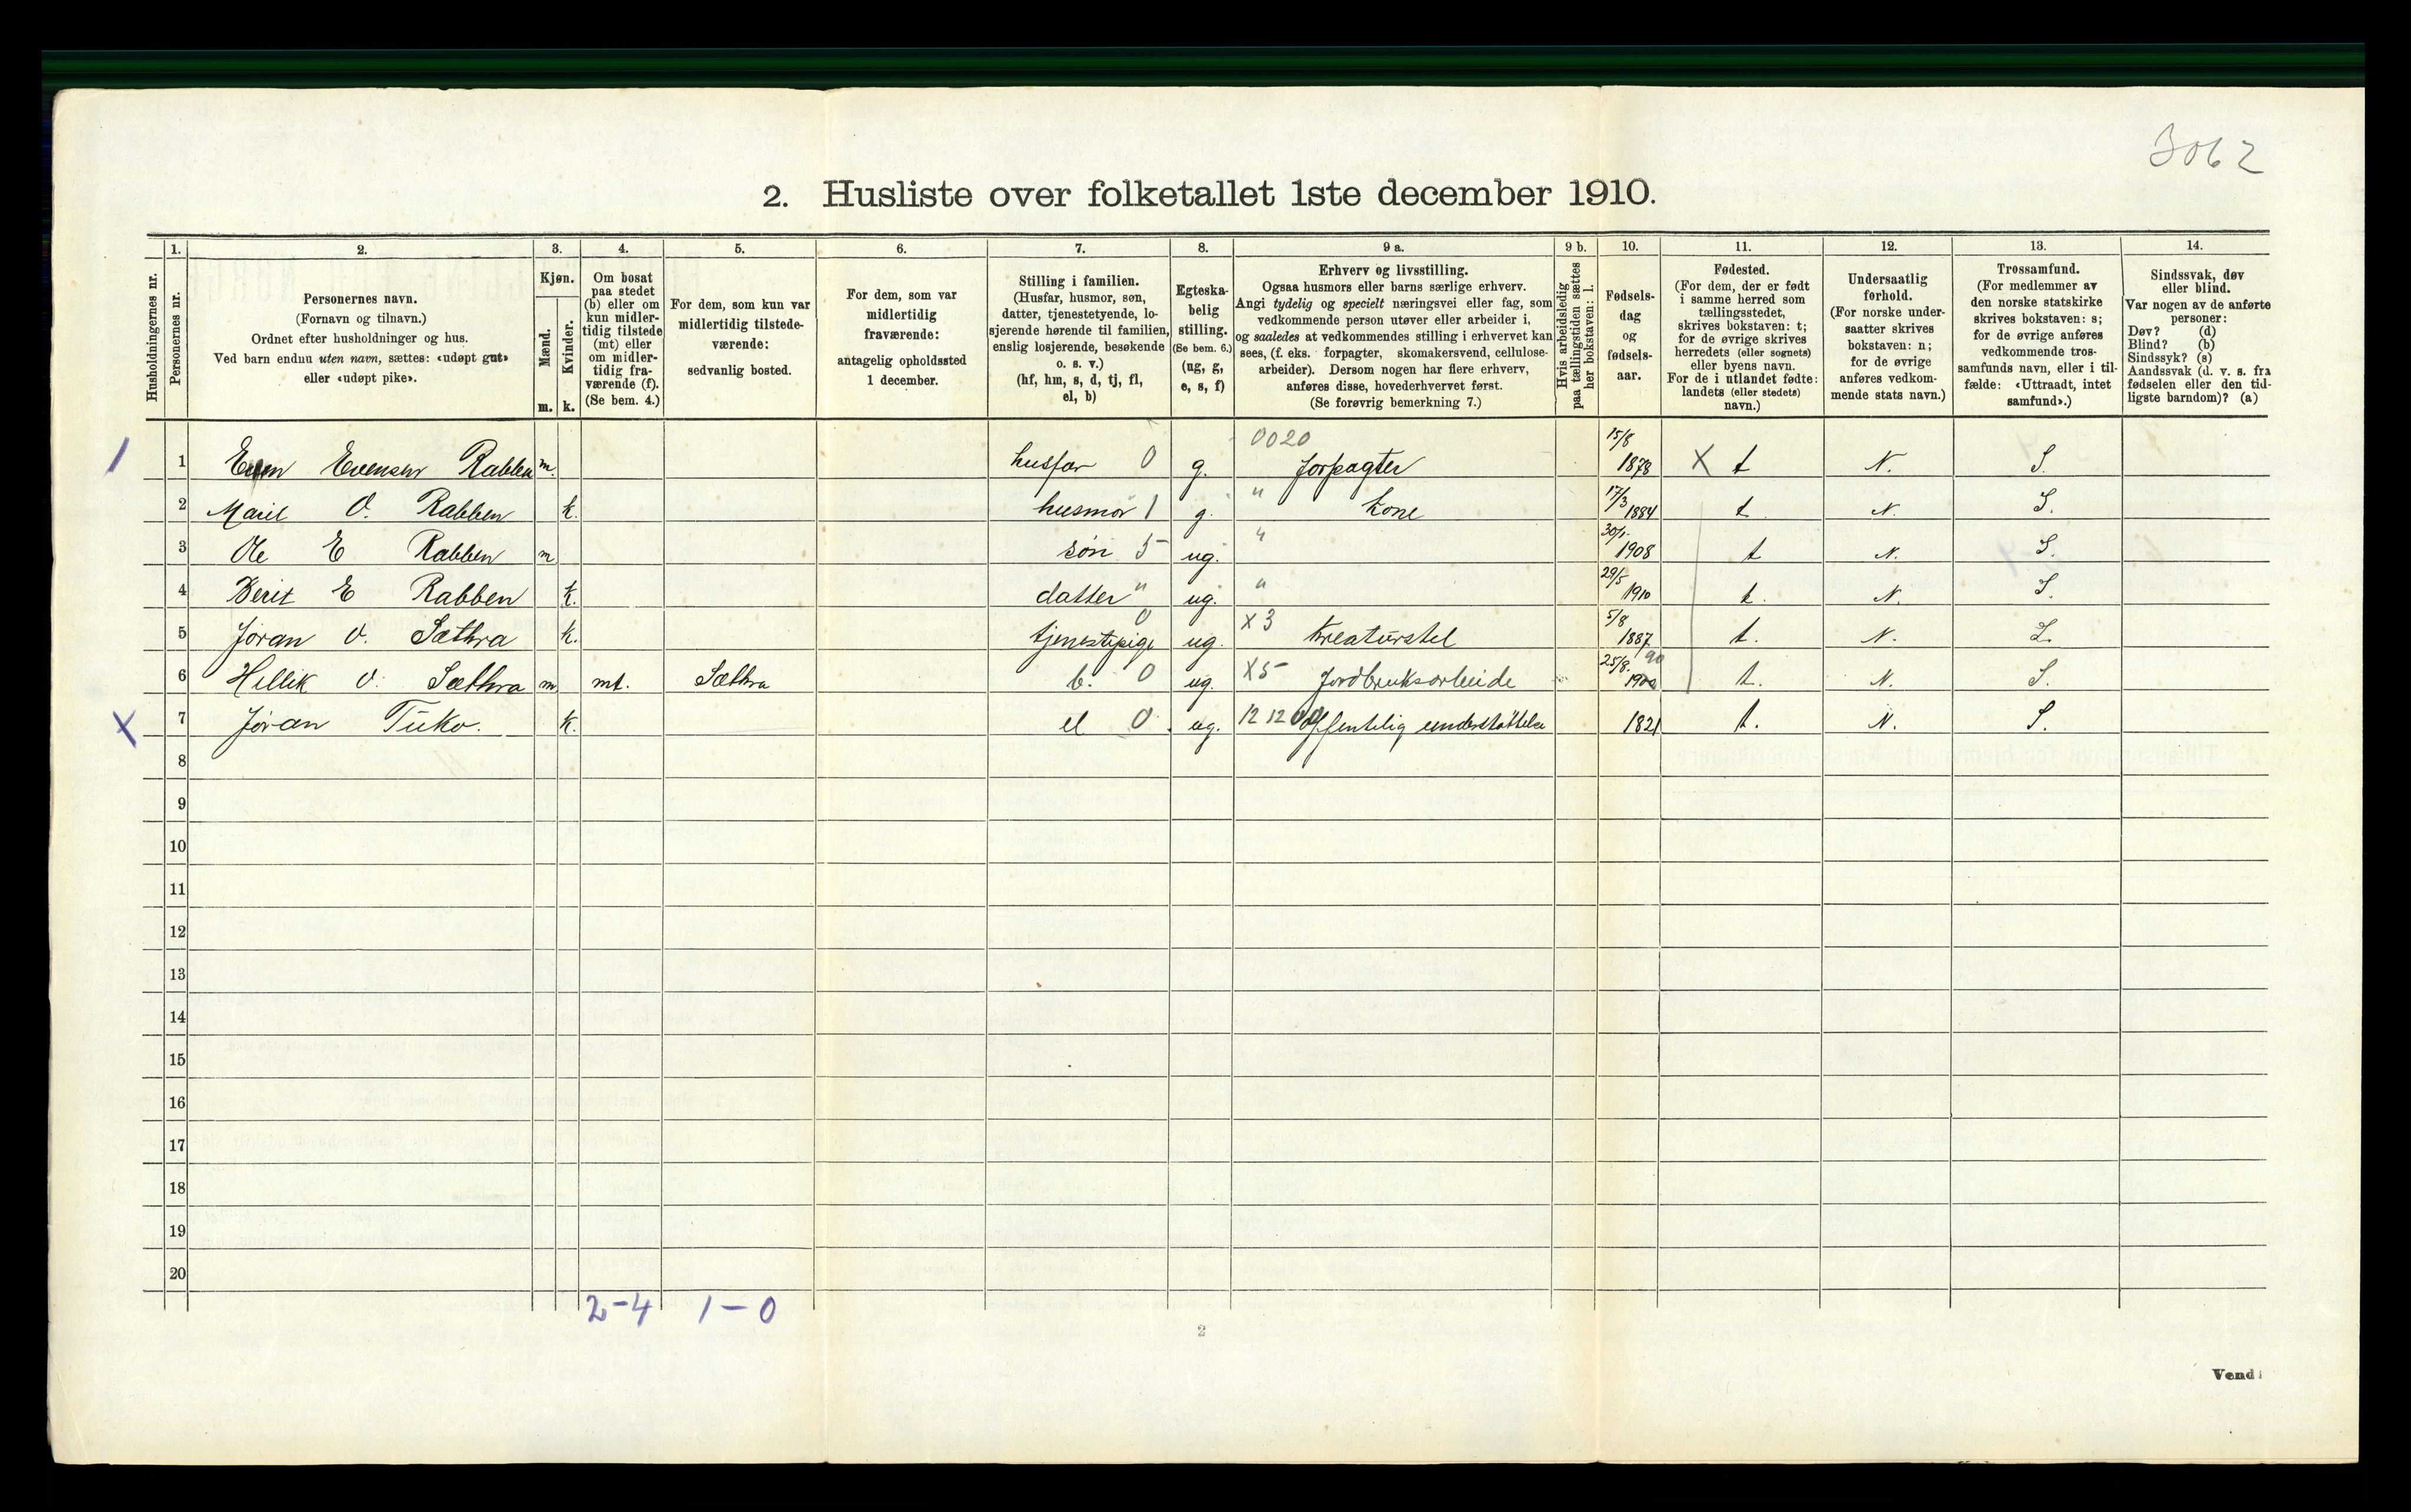 3062
2. Husliste over folketallet 1ste december 1910.
Husholdningernes nr.
1. Personernes nr.
2. Personernes navn.
(Fornavn og tilnavn.)
Ordnet efter husholdninger og hus.
Ved barn endnu uten navn, sættes: «udøpt gut»
eller «udøpt pike».
3. Kjøn.
Mænd. m.
Kvinder. k.
4. Om bosat
paa stedet
(b) eller om
kun midler-
tidig tilstede
(mt) eller
om midler-
tidig fra-
værende (f).
(Se bem. 4.)
5. For dem, som kun var
midlertidig tilstede-
værende:
sedvanlig bosted.
6. For dem, som var
midlertidig
fraværende:
antagelig opholdssted
1 december.
7. Stilling i familien.
(Husfar, husmor, søn,
datter, tjenestetyende, lo-
sjerende hørende til familien,
enslig losjerende, besøkende
o. s. v.)
(hf, hm, s, d, tj, fl,
el, b)
8. Egteska-
belig
stilling.
(Se bem. 6.)
(ug, g,
e, s, f)
9 a. Erhverv og livsstilling.
Ogsaa husmors eller barns særlige erhverv.
Angi tydelig og specielt næringsvei eller fag, som
vedkommende person utøver eller arbeider i,
og saaledes at vedkommendes stilling i erhvervet kan
sees, (f. eks. forpagter, skomakersvend, cellulose-
arbeider). Dersom nogen har flere erhverv,
anføres disse, hovederhvervet først.
(Se forøvrig bemerkning 7.)
9 b. Hvis arbeidsledig
paa tællingstiden sættes
her bokstaven: l.
10. Fødsels-
dag
og
fødsels-
aar.
11. Fødested.
(For dem, der er født
i samme herred som
tællingsstedet,
skrives bokstaven: t;
for de øvrige skrives
herredets (eller sognets)
eller byens navn.
For de i utlandet fødte:
landets (eller stedets)
navn.)
12. Undersaatlig
forhold.
(For norske under-
saatter skrives
bokstaven: n;
for de øvrige
anføres vedkom-
mende stats navn.)
13. Trossamfund.
(For medlemmer av
den norske statskirke
skrives bokstaven: s;
for de øvrige anføres
vedkommende tros-
samfunds navn, eller i til-
fælde: «Uttraadt, intet
samfund».)
14. Sindssvak, døv
eller blind.
Var nogen av de anførte
personer:
Døv? (d)
Blind? (b)
Sindssyk? (s)
Aandssvak (d. v. s. fra
fødselen eller den tid-
ligste barndom)? (a)
1 1 Even Evensen Rabben m. husfar 0 g. 0020 forpagter 15/8 1878 X t N. S.
2 Marit O. Rabben k. husmor 1 g. " kone 17/3 1884 t N. S.
3 Ole E Rabben m søn 5 ug. " 30/1. 1908 t N. S.
4 Berit E Rabben k. datter " ug. " 29/5 1910 t. N. S.
5 Jøran O. Sæthra k. tjenestepige 0 ug. X3 Kreaturstel 5/8 1887. t. N. S.
6 Hellik O. Sæthra m mt. Sæthra b. 0 ug. X5 Jordbruksarbeide 25/8. 90 t. N. S.
X 7 Jøran Tuko. k. el 0 ug. 12 12 00 Offentelig understøttelse 1821 t. N. S.
8
9
10
11
12
13
14
15
16
17
18
19
20
2-4 1-0
2
Vend!